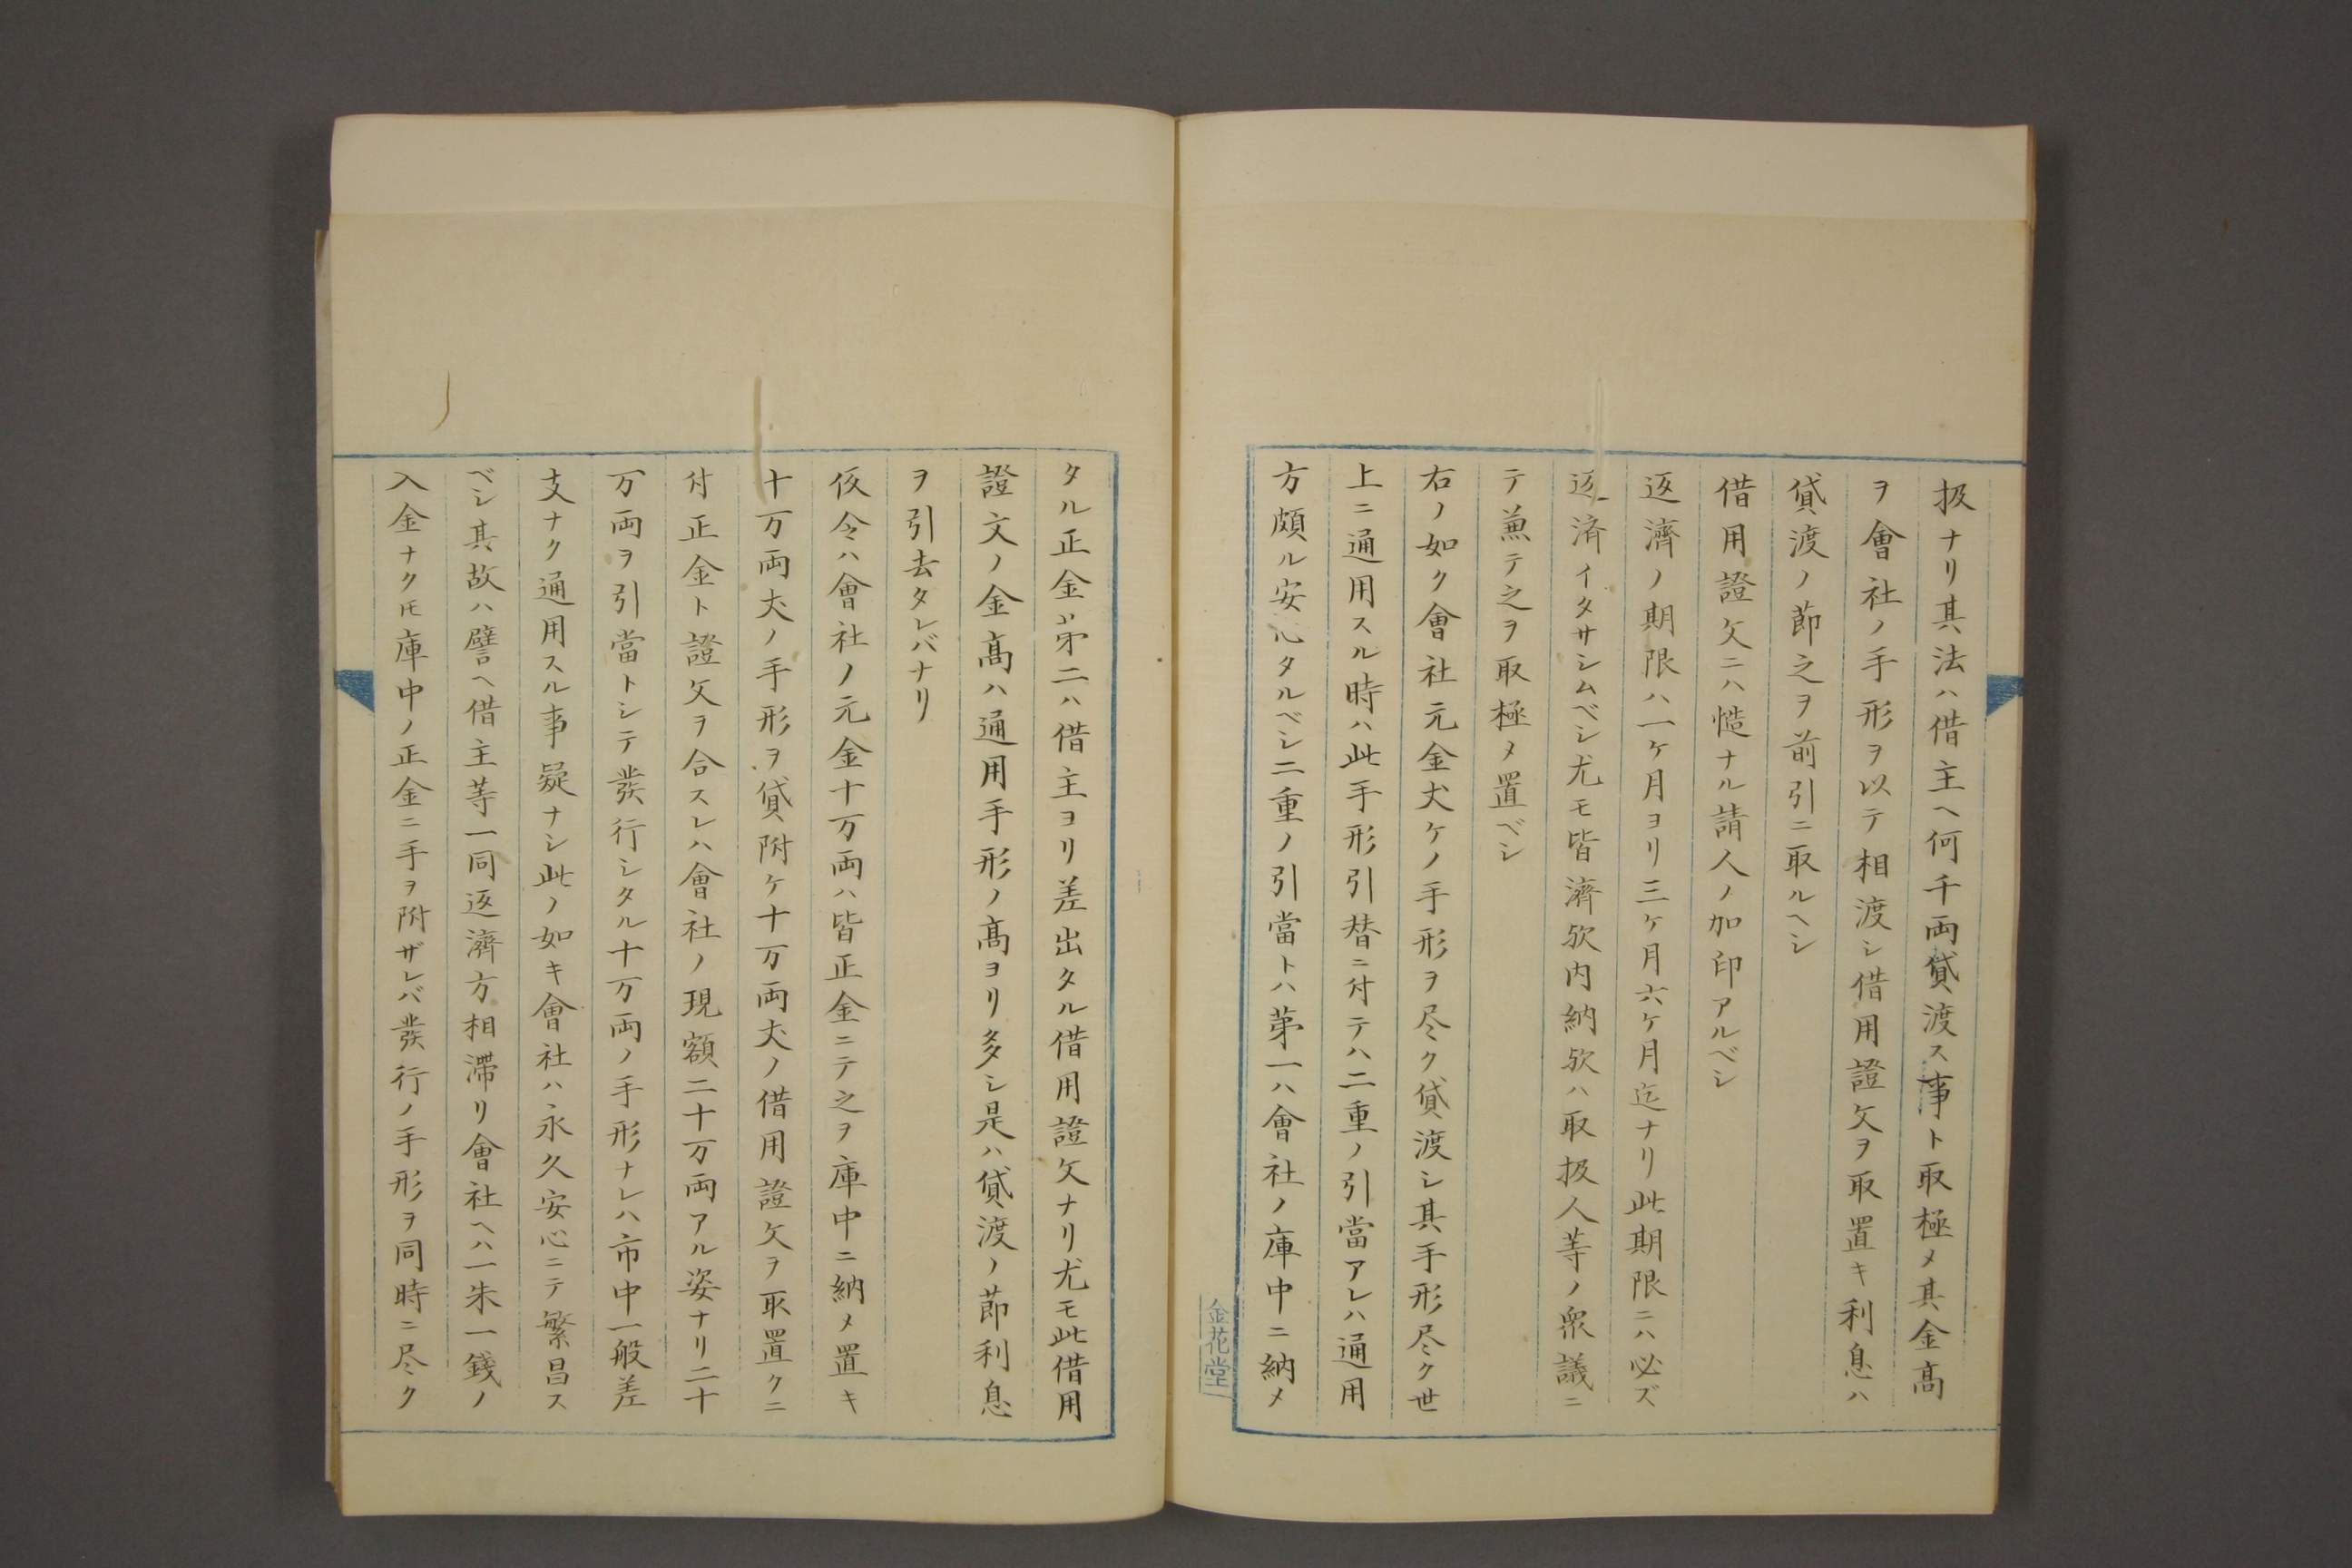 扱ナリ其法ハ借主ヘ何千両貸渡ス事ト取極メ其金高
ヲ會社ノ手形ヲ以テ相渡シ借用證文ヲ取置キ利息ハ
貸渡ノ節之ヲ前引ニ取ルヘシ
借用證文ニハ慥ナル請人ノ加印アルベシ
返濟ノ期限ハ一ケ月ヨリ三ケ月六ケ月迄ナリ此期限ニハ必ズ
返済イタサシムベシ尤モ皆濟欤内納欤ハ取扱人等ノ衆議ニ
テ兼テ之ヲ取極メ置ベシ
右ノ如ク會社元金丈ケノ手形ヲ尽ク貸渡シ其手形尽ク世
上ニ通用スル時ハ此手形引替ニ付テハ二重ノ引當アレハ通用
方頗ル安心タルベシ二重ノ引當トハ苐一ハ會社ノ庫中ニ納メ
金花堂
タル正金苐二ハ借主ヨリ差出タル借用證文ナリ尤モ此借用
證文ノ金髙ハ通用手形ノ髙ヨリ多シ是ハ貸渡ノ節利息
ヲ引去タレバナリ
仮令ハ會社ノ元金十万両ハ皆正金ニテ之ヲ庫中ニ納メ置キ
十万両丈ノ手形ヲ貸附ケ十万両丈ノ借用證文ヲ取置クニ
付正金ト證文ヲ合スレハ會社ノ現額二十万両アル姿ナリ二十
万両ヲ引當トシテ発行シタル十万両ノ手形ナレハ市中一般差
支ナク通用スル事疑ナシ此ノ如キ會社ハ永久安心ニテ繁昌ス
ベシ其故ハ譬ヘ借主等一同返濟方相滞リ會社ヘハ一朱一錢ノ
入金ナクモ庫中ノ正金ニ手ヲ附ザレバ発行ノ手形ヲ同時ニ尽ク